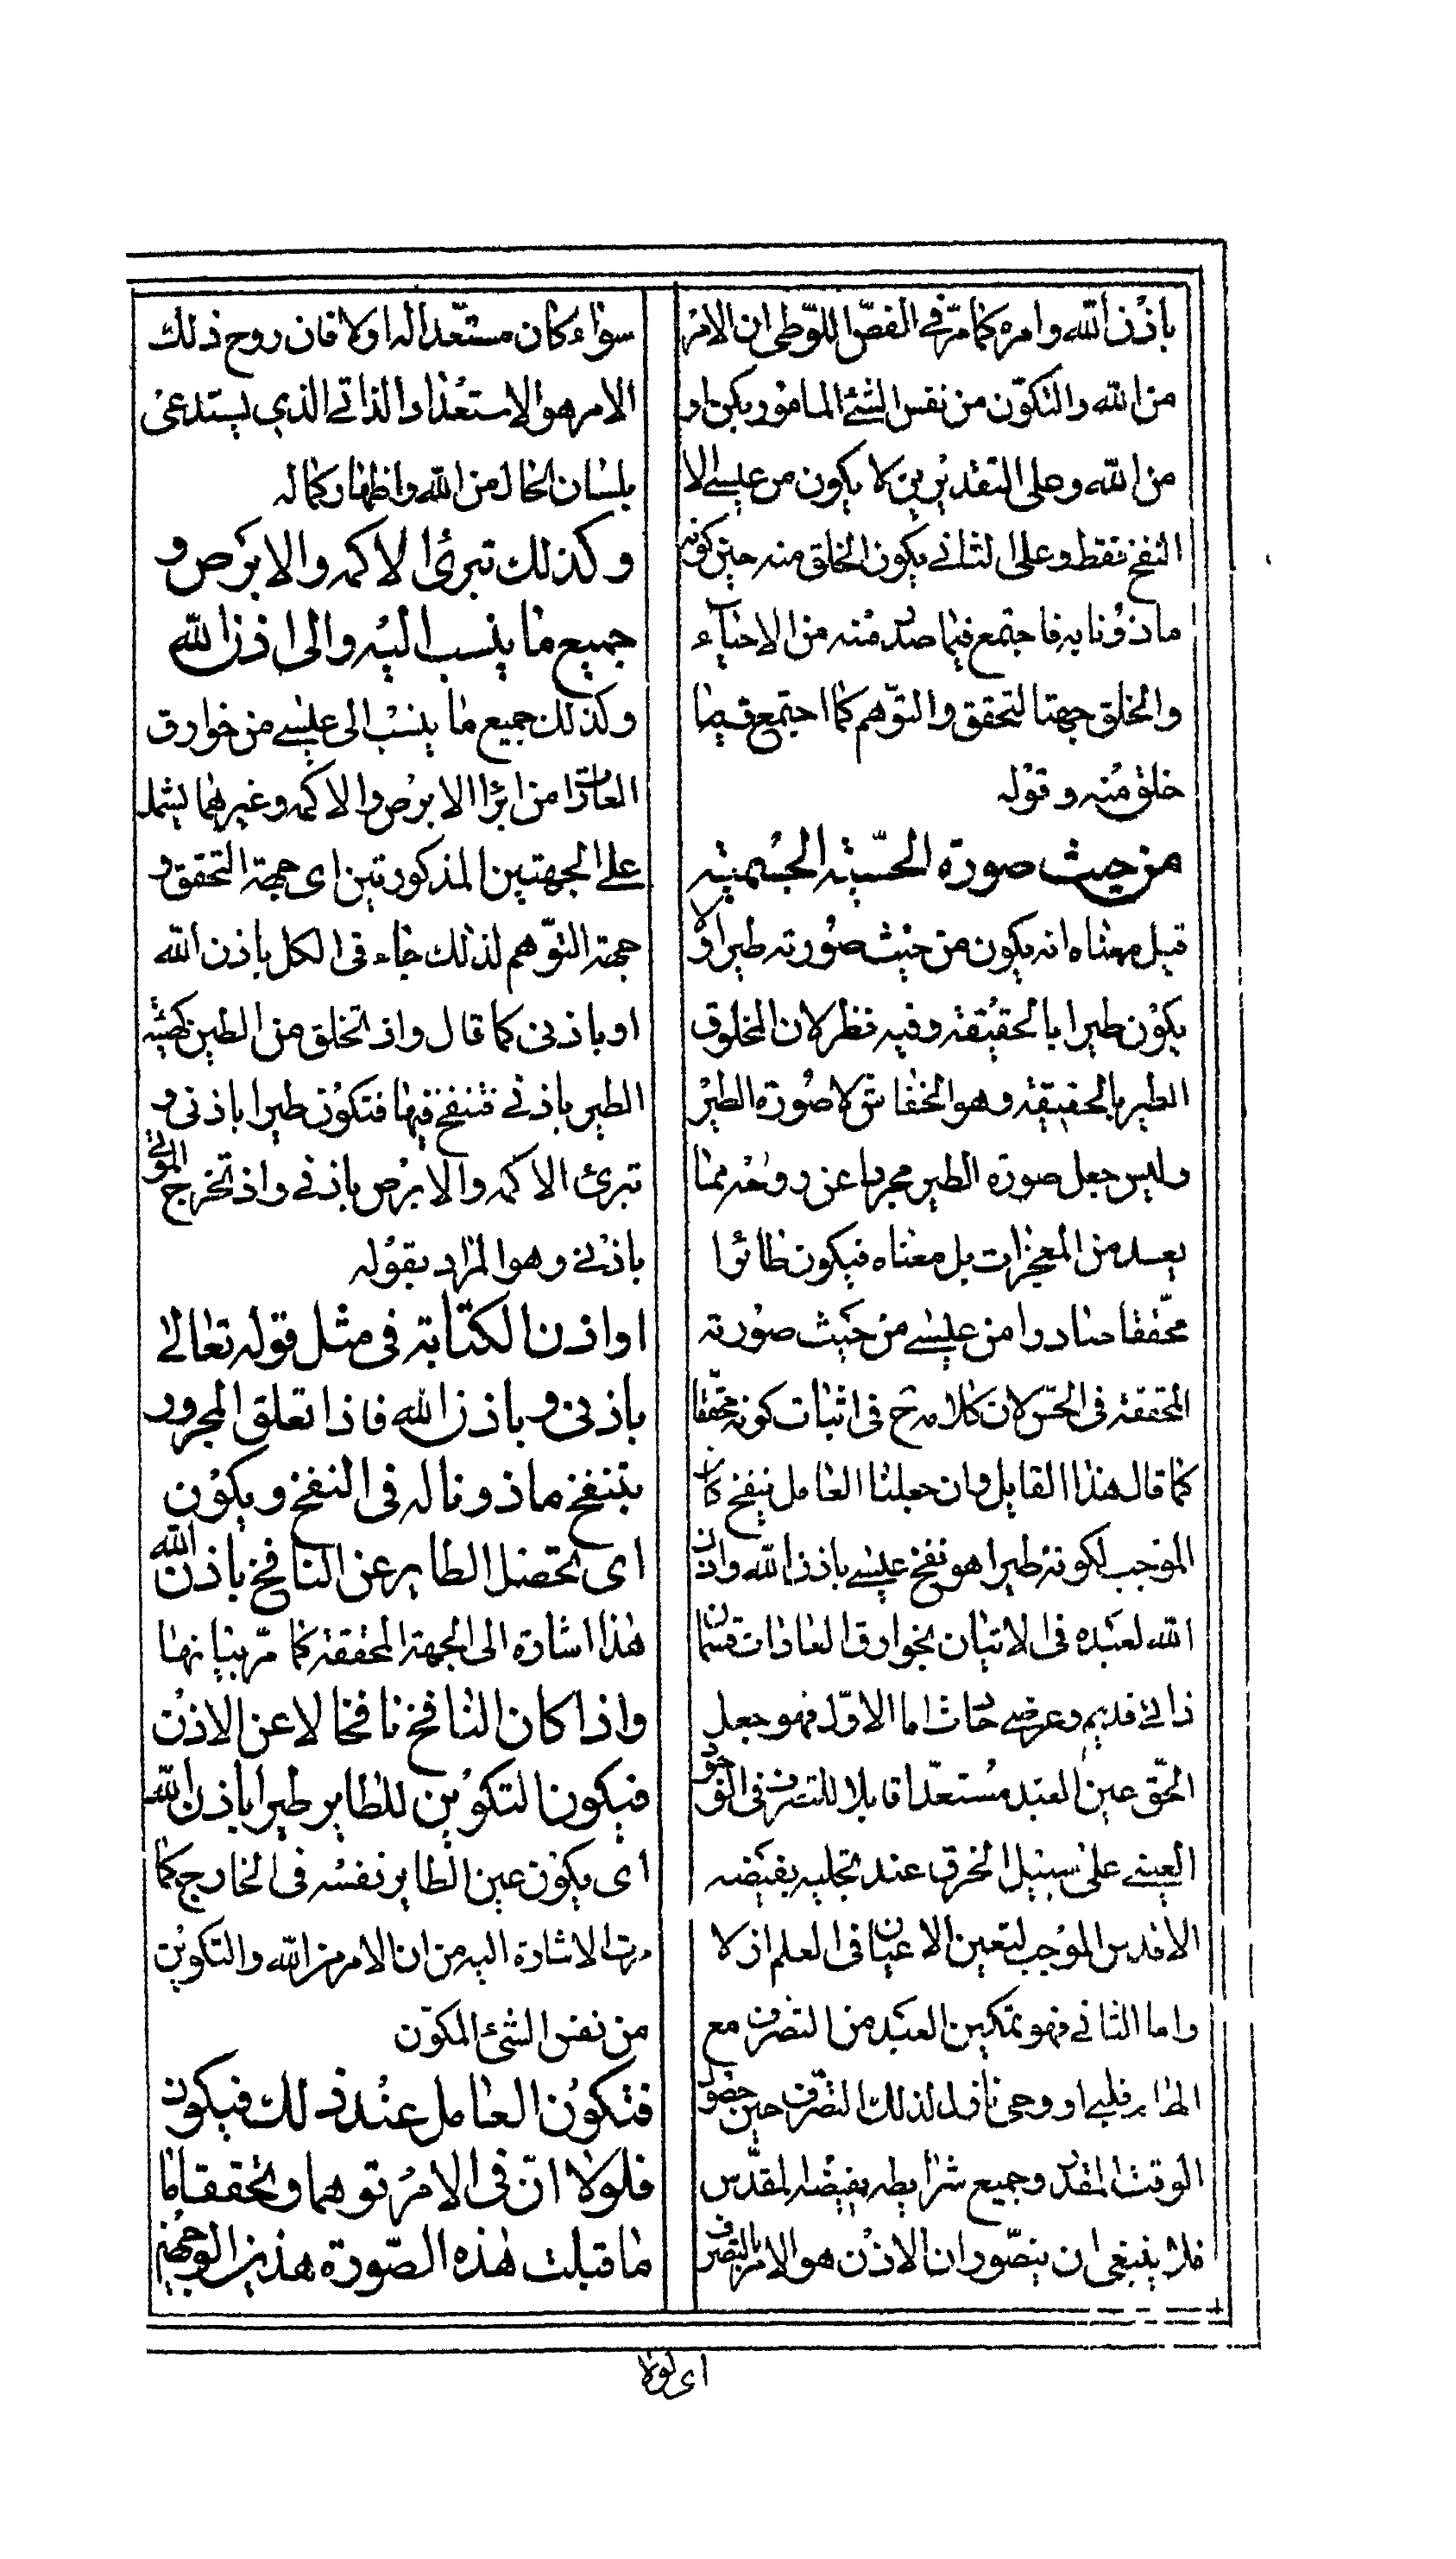 باذن الله وامره كما مرّ فى الفصّ اللوّطى ان الامر
من الله والتكوّن من نفس الشئ المامور بكن او
من الله وعلى التقديرين لا يكون من عيسى الا
النفخ فقط وعلى الثانى يكون الخلق منه حين كونه
ماذونا به فاجتمع فيما صدر منه من الاحياء
والخلق جهتا التحقق والتوّهم كما اجتمع فيما
خلق منه وقوله
من حيث صورة الحسّية الجسمية
قيل معناه انه يكون من حيث صورته طيرا ولا
يكون طيرا بالحقيقة وفيه نظر لان المخلوق
الطير بالحقيقة وهو الخفاش لا صورة الطير
وليس جعل صورة الطير مجردا عن روحه مما
يعد من المعجزات بل معناه فيكون طائرا
محّققا صادرا من عيسى من حيث صورته
المحققة فى الحسّ لان كلامه ح فى اثبات كونه محققا
كما قال هذا القايل وان جعلنا العامل ينفخ كان
الموجب لكونه طيرا هو نفخ عيسى باذن الله واذن
الله لعبده فى الاتيان بخوارق العادات قسمان
ذاتى قديم وعرضى حادث اما الاوّل فهو جعل
الحّق عين العبد مستعدّا قابلا للتصرف فى الوجود
العينى على سبيل الخرق عند تجليه بفيضه
الاقدس الموجب لتعين الاعيان فى العلم ازلا
واما الثانى فهو تمكين العبد من التصرف مع
الهام قلبى او وحى نازل لذلك التصرّف حين حضور
الوقت المقدر وجميع شرايطه بفيضه المقدّس
فلا ينبغى ان يتصّور ان الاذن هو الامر بالتصرف
سواء كان مستعّدا له او لا فان روح ذلك
الامر هو الاستعداد الذاتى الذى يستدعى
بلسان الحال من الله واظهار كماله
وكذلك تبرئ الاكمه والابرص و
جميع ما ينسب اليه والى اذن الله
وكذلك جميع ما ينسب الى عيسى من خوارق
العادات من ابراا الابرص والاكمه وغيرهما يشمل
على الجهتين المذكورتين اى جهة التحقق و
جهة التوّهم لذلك جاء فى الكل باذن الله
او باذنى كما قال واذ تخلق من الطين كهيئة
الطير باذنى فتنفخ فيها فتكون طيرا باذنى و
تبرئ الاكمه والابرص باذنى واذ تخرج الموتى
باذنى وهو المراد بقوله
او اذن الكتابة فى مثل قوله تعالى
باذنى وباذن الله فاذا تعلق المجرور
بتنفخ ماذونا له فى النفخ ويكون
اى تحصل الطاير عن النافخ باذن الله
هذا اشارة الى الجهة المحققة كما مرّ بيانها
واذا كان النافخ نافخا لا عن الاذن
فيكون التكوين للطاير طيرا باذن الله
اى يكون عين الطاير نفسه فى الخارج كما
مرت الاشارة اليه من ان الامر من الله والتكوين
من نفس الشئ المكوّن
فتكون العامل عند ذلك فيكون
فلولا انّ فى الامر توهما وتحققا ما
ما قبلت هذه الصّورة هذين الوجهين
اى لولا